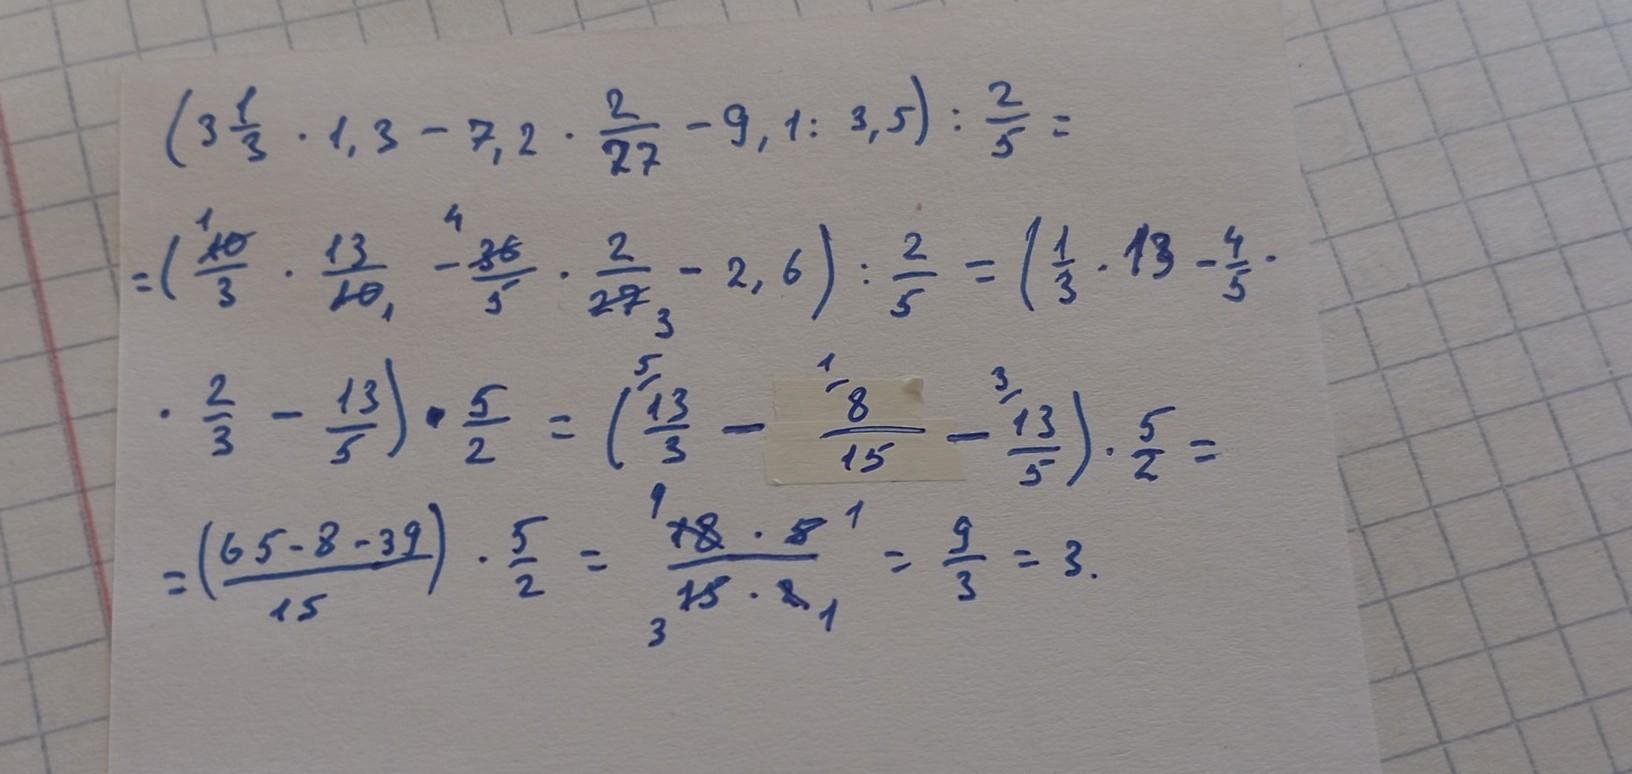 (3 1/3 · 1,3 - 7,2 · 2/27 - 9,1 : 3,5) : 2/5 =
= (10/3 · 13/10 - 36/5 · 2/27 - 2,6) : 2/5 = (1/3 · 13 - 4/5 ·
· 2/3 - 13/5) · 5/2 = (13/3 - 8/15 - 13/5) · 5/2 =
= (65-8-39/15) · 5/2 = 18 · 5/15 · 2 = 9/3 = 3.